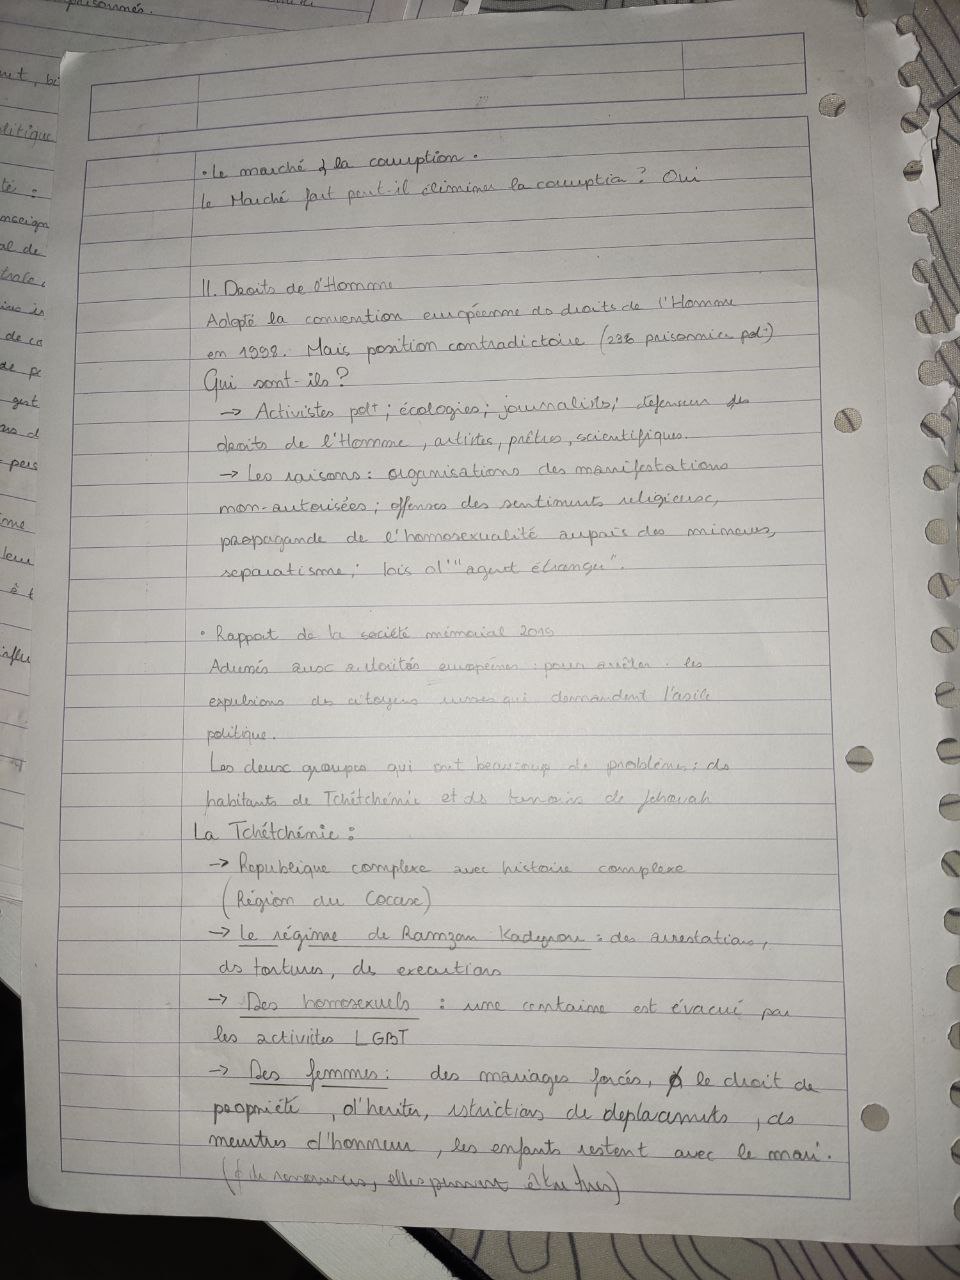 paisonnés.
ut, bi
litique
té :
nseign
al de
trale,
de co
de pe
gest
ns d
pers
leur
influ
• Le marché & la corruption.
Le Marché fait peut-il éliminer la corruption ? Oui
II. Droits de l'Homme
Adopté la convention européenne ds droits de l'Homme
en 1998. Mais position contradictoire (236 prisonnier pol+)
Qui sont-ils ?
→ Activistes pol+ ; écologies ; journalists ; défenseur des
droits de l'Homme, artistes, prêtres, scientifiques.
→ Les raisons : organisations des manifestations
non-autorisées ; offenses des sentiments religieux,
propagande de l'homosexualité auprès des mineurs,
separatisme ; lois d'"agent étranger".
• Rapport de la société mémorial 2019
Adressés aux autorités européenes : pour arrêter les
expulsions des citoyens russes qui demandent l'asile
politique.
Les deux groupes qui ont beaucoup de problème : ds
habitants de Tchétchénie et ds temoins de Jehovah
La Tchétchénie :
→ Republique complexe avec histoire complexe
(Région du Cocase)
→ Le régime de Ramzan Kadyrov : des arrestations,
ds tortures, ds executions
→ Des homosexuels : une centaine est évacué par
les activistes LGBT
→ Des femmes : des mariages forcés, le droit de
propriété, d'heriter, strictions de deplacmts, ds
meurtres d'honneur, les enfants restent avec le mari.
elles peuvent être tues)